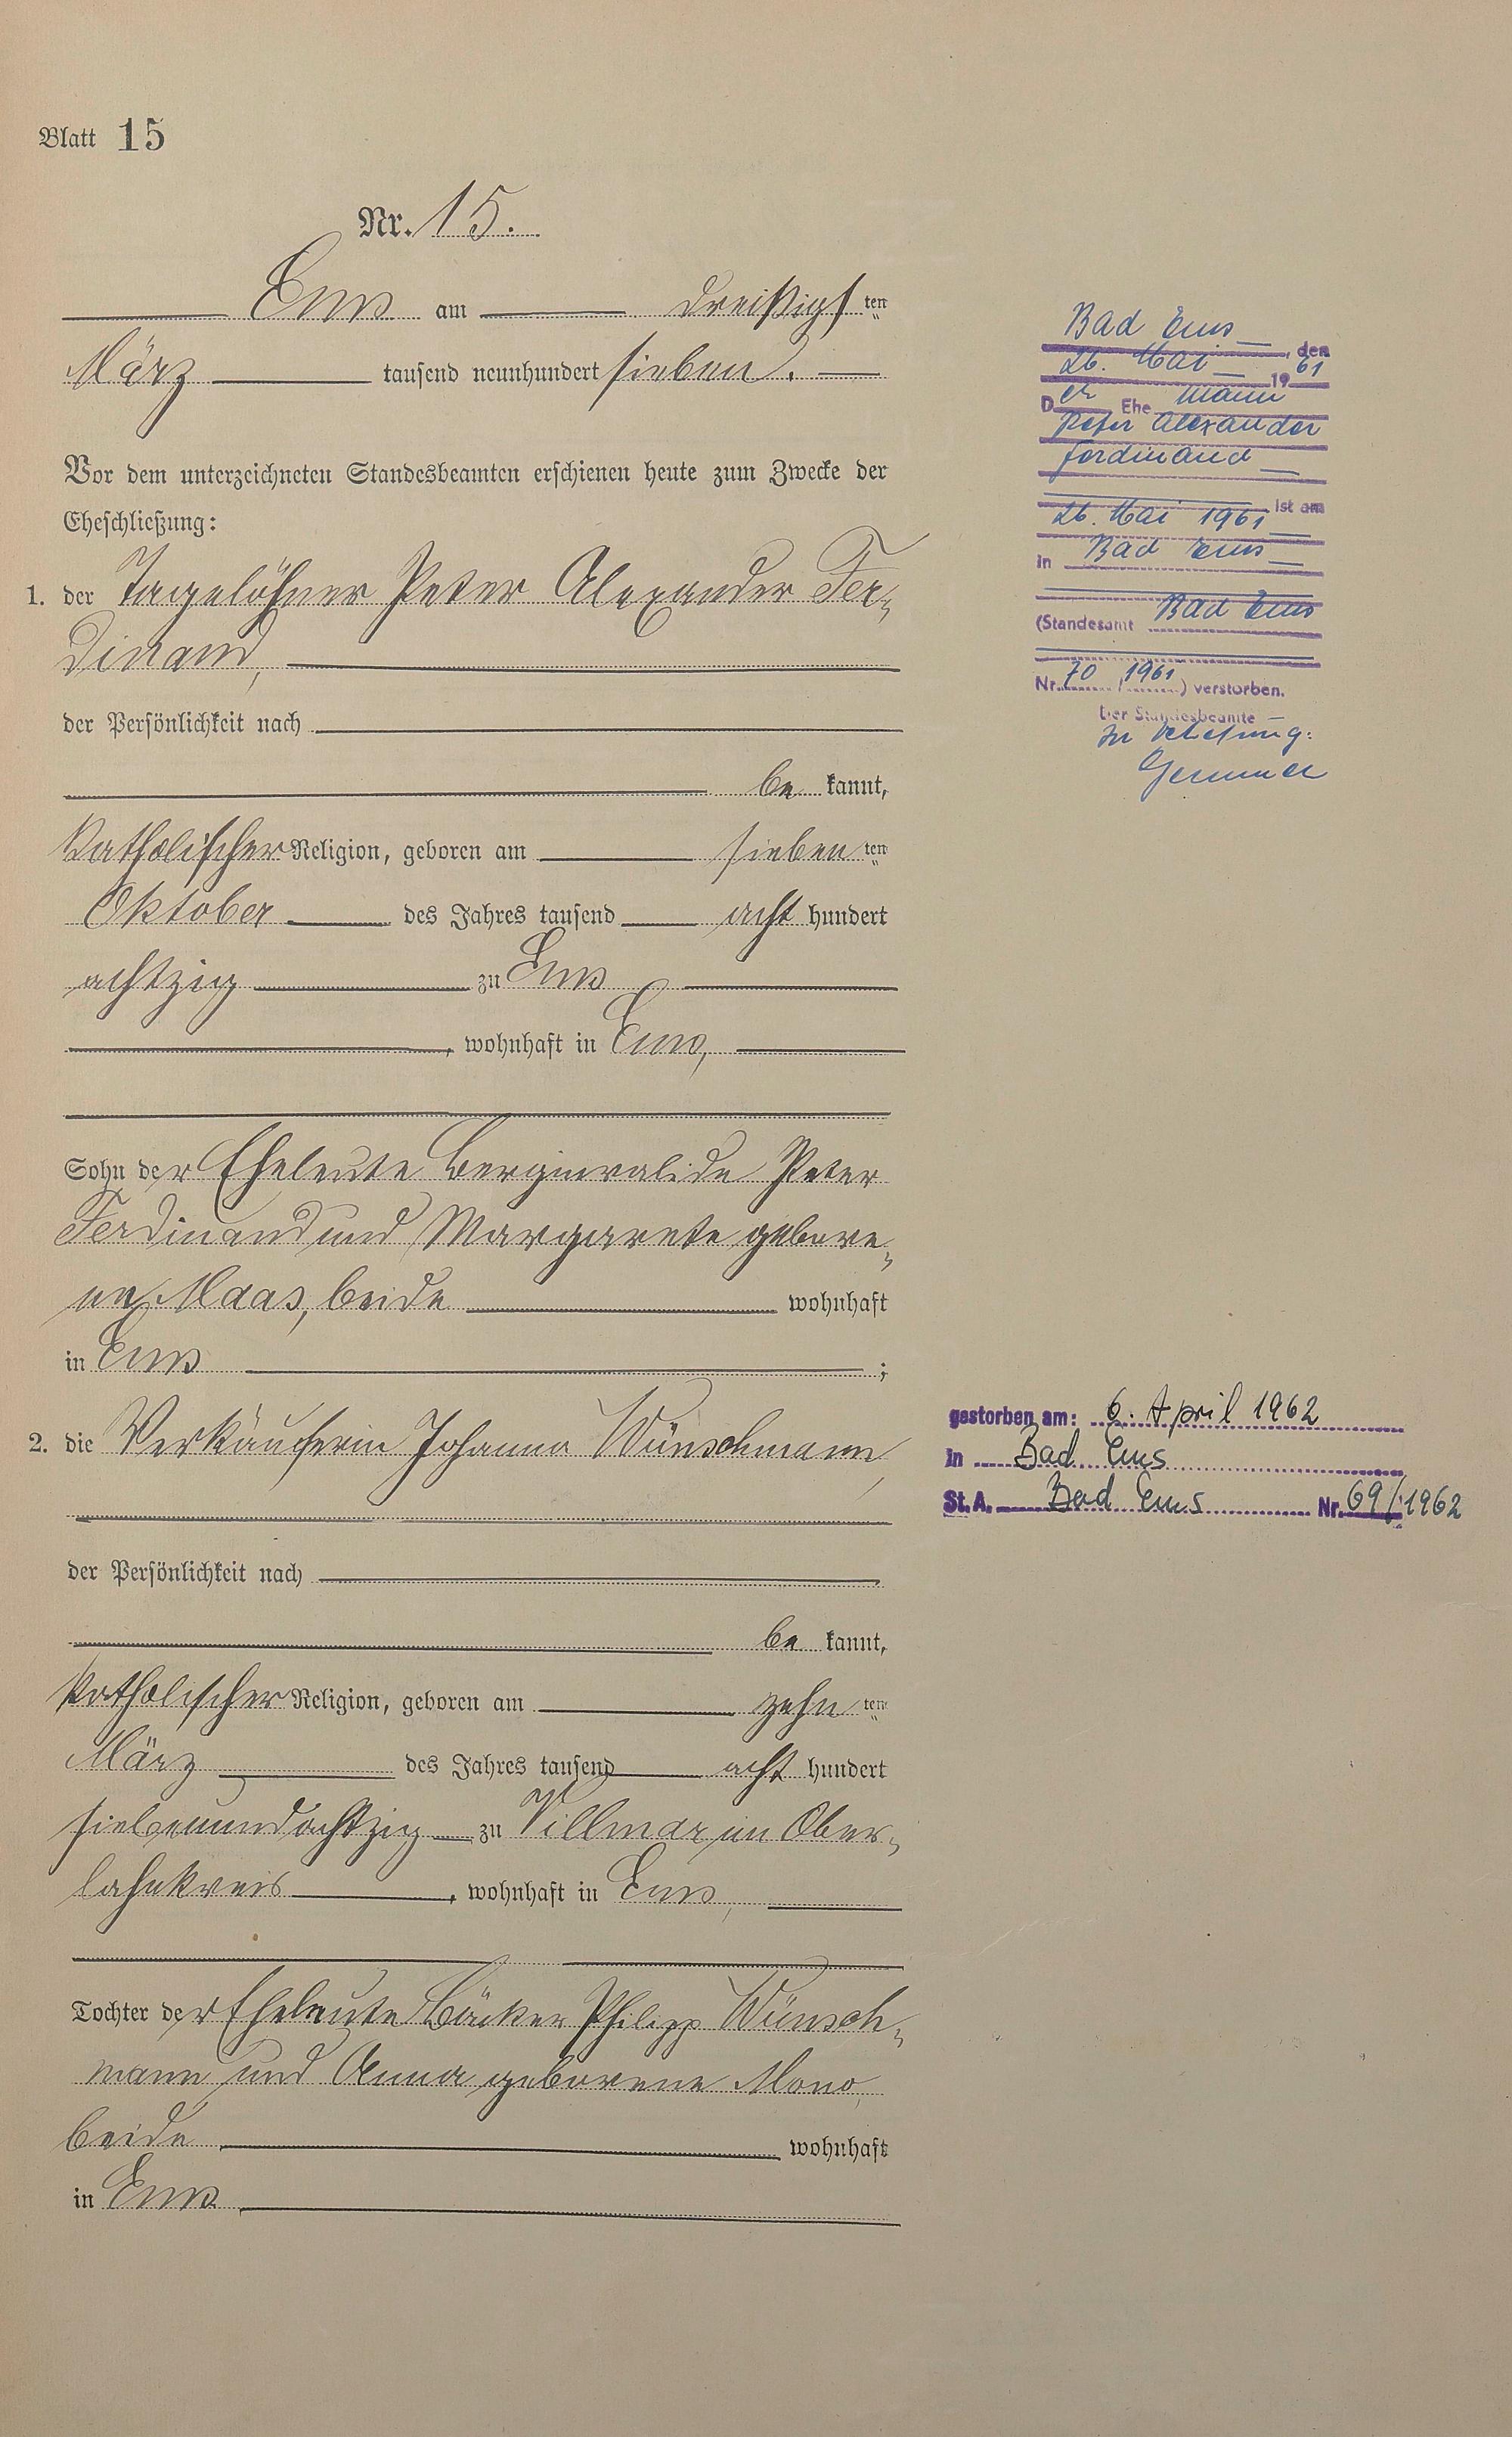 Blatt 15
Nr. 15.
Ems am dreißigsten
März tausend neunhundert sieben.
Vor dem unterzeichneten Standesbeamten erschienen heute zum Zwecke der
Eheschließung:
1. der Tagelöhner Peter Alexander Fer-
dinand,
der Persönlichkeit nach
be kannt,
katholischer Religion, geboren am sieben ten
Oktober des Jahres tausend acht hundert
achtzig zu Ems
, wohnhaft in Ems,
Sohn der Eheleute Berginvalide Peter
Ferdinand und Margarete gebore-
ne Maas, beide wohnhaft
in Ems ;
2. die Verkäuferin Johanna Wünschmann,
der Persönlichkeit nach
be kannt,
katholischer Religion, geboren am zehn ten
März des Jahres tausend acht hundert
siebenundachtzig zu Villmar im Ober-
lahnkreis, wohnhaft in Ems,
Tochter der Eheleute Bäcker Philipp Wünsch-
mann und Anna geborene
beide wohnhaft
in Ems
Bad Ems, den
26. Mai 1961
Der Ehemann
Peter Alexander
Ferdinand
ist am
26. Mai 1961
in Bad Ems
(Standesamt Bad Ems
Nr. 70 / 1961) verstorben.
Der Standesbeamte
In Vertretung:
gestorben am: 6. April 1962
in Bad Ems
St.A. Bad Ems Nr. 69/1962